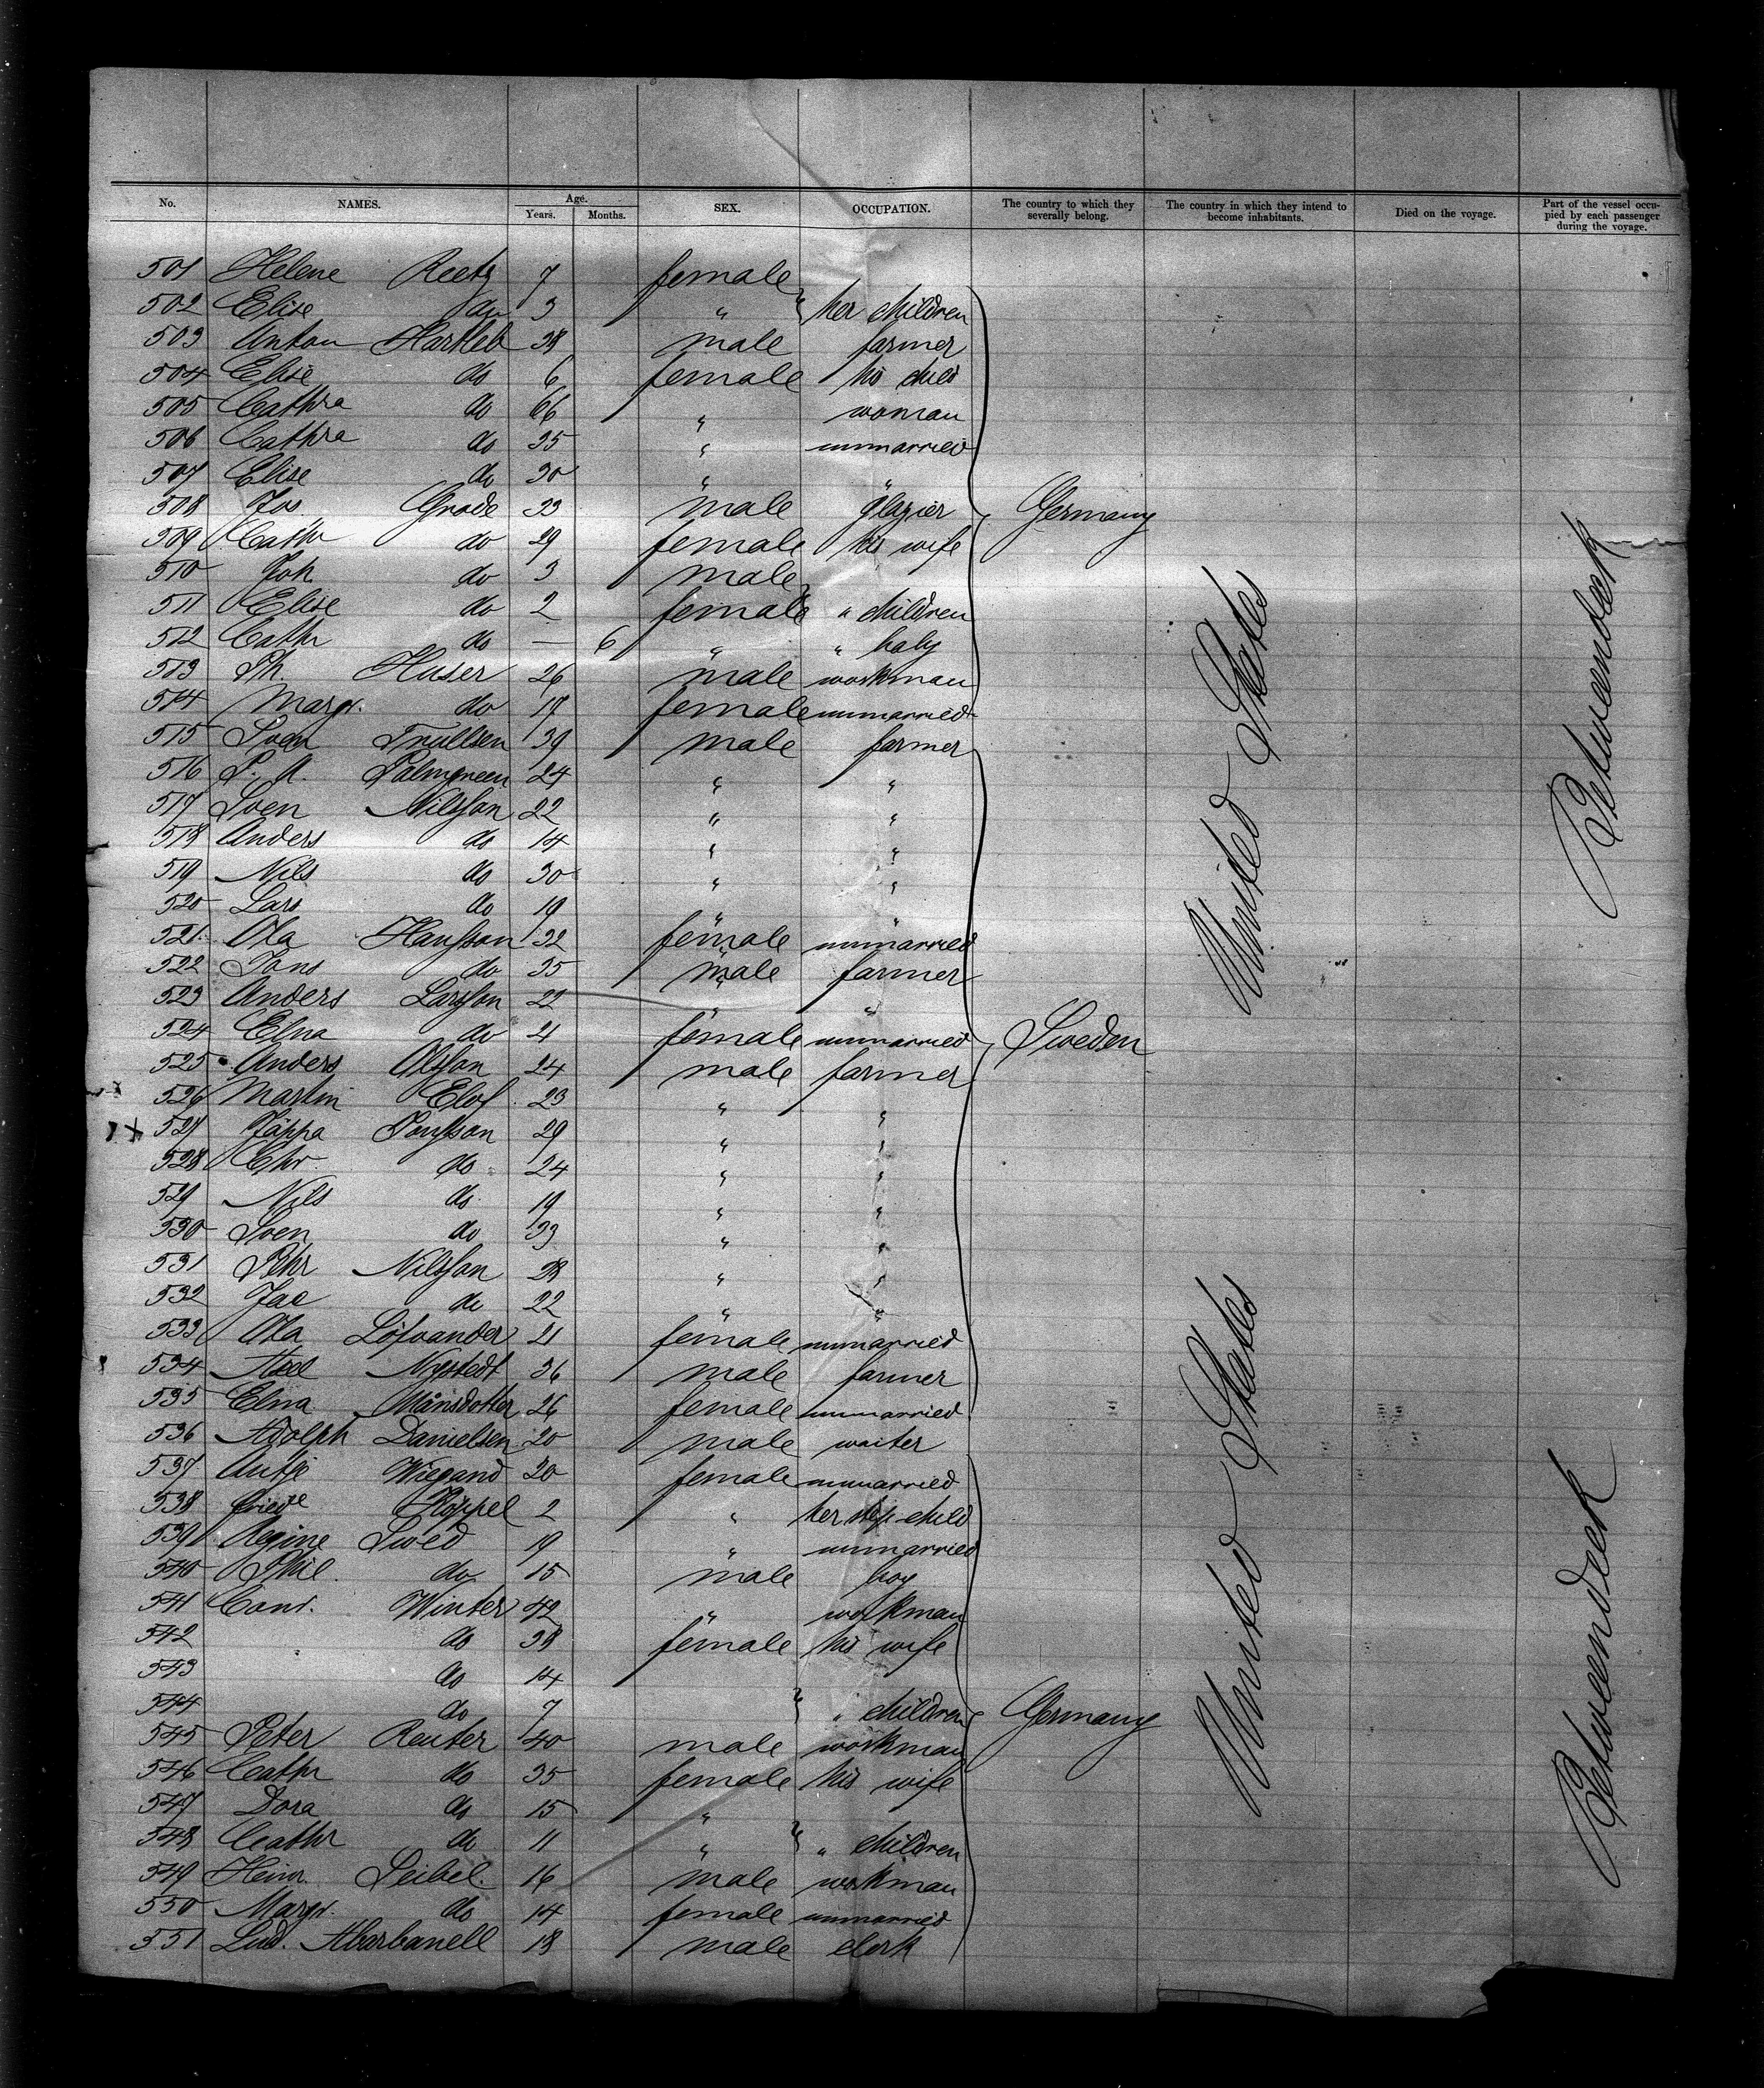 No. NAMES. Age. Years. Months. SEX. OCCUPATION. The country to which they severally belong. The country in which they intend to become inhabitants. Died on the voyage. Part of the vessel occupied by each passenger during the voyage.
501 Helene Reetz 7 female
502 Elise do 3 " } her children
503 Anton Hartleb 38 male farmer
504 Elise do 6 female his child
505 Cathra do 66 " woman
506 Cathra do 35 " unmarried
507 Elise do 30 " "
508 Jos Grode 33 male glazier Germany
509 Cathr do 29 female his wife
510 Joh do 3 male
511 Elise do 2 female " children
512 Cathr do — 6 " " baby
513 Ph. Huser 26 male workman
514 Margr. do 17 female unmarried
515 Sven Trullsen 39 male farmer
516 P. A. Palmgreen 24 " "
517 Sven Nilsson 22 " "
518 Anders do 14 " "
519 Nils do 30 " "
520 Lars do 19 " "
521 Ola Hansson 32 female unmarried
522 Jöns do 35 male farmer
523 Anders Larsson 22 " "
524 Elna do 21 female unmarried Sweden
525 Anders Olsson 24 male farmer
526 Martin Elof 23 " "
x 527 Jäppa Jonsson 29 " "
528 Chr. do 24 " "
529 Nils do 19 " "
530 Sven do 33 " "
531 Pehr Nilsson 28 " "
532 Jac do 22 " "
533 Ola Löfvander 21 female unmarried
534 Axel Nystedt 36 male farmer
535 Elna Månsdotter 26 female unmarried
536 Adolph Danielsen 20 male waiter
537 Antje Wiegand 20 female unmarried
538 Friede Köppel 2 " her step-child
539 Regine Swed 19 " unmarried
540 Phil. do 15 male boy
541 Conr. Winter 42 " workman
542 do 38 female his wife
543 do 14
544 do 7 } " children Germany
545 Peter Reuter 40 male workman
546 Cathr do 35 female his wife
547 Dora do 15 "
548 Cathr do 11 " } " children
549 Heinr. Seibel. 16 male workman
550 Margr. do 14 female unmarried
551 Lud. Abarbanell 18 male clerk
United States
United States
Betweendeck
Betweendeck